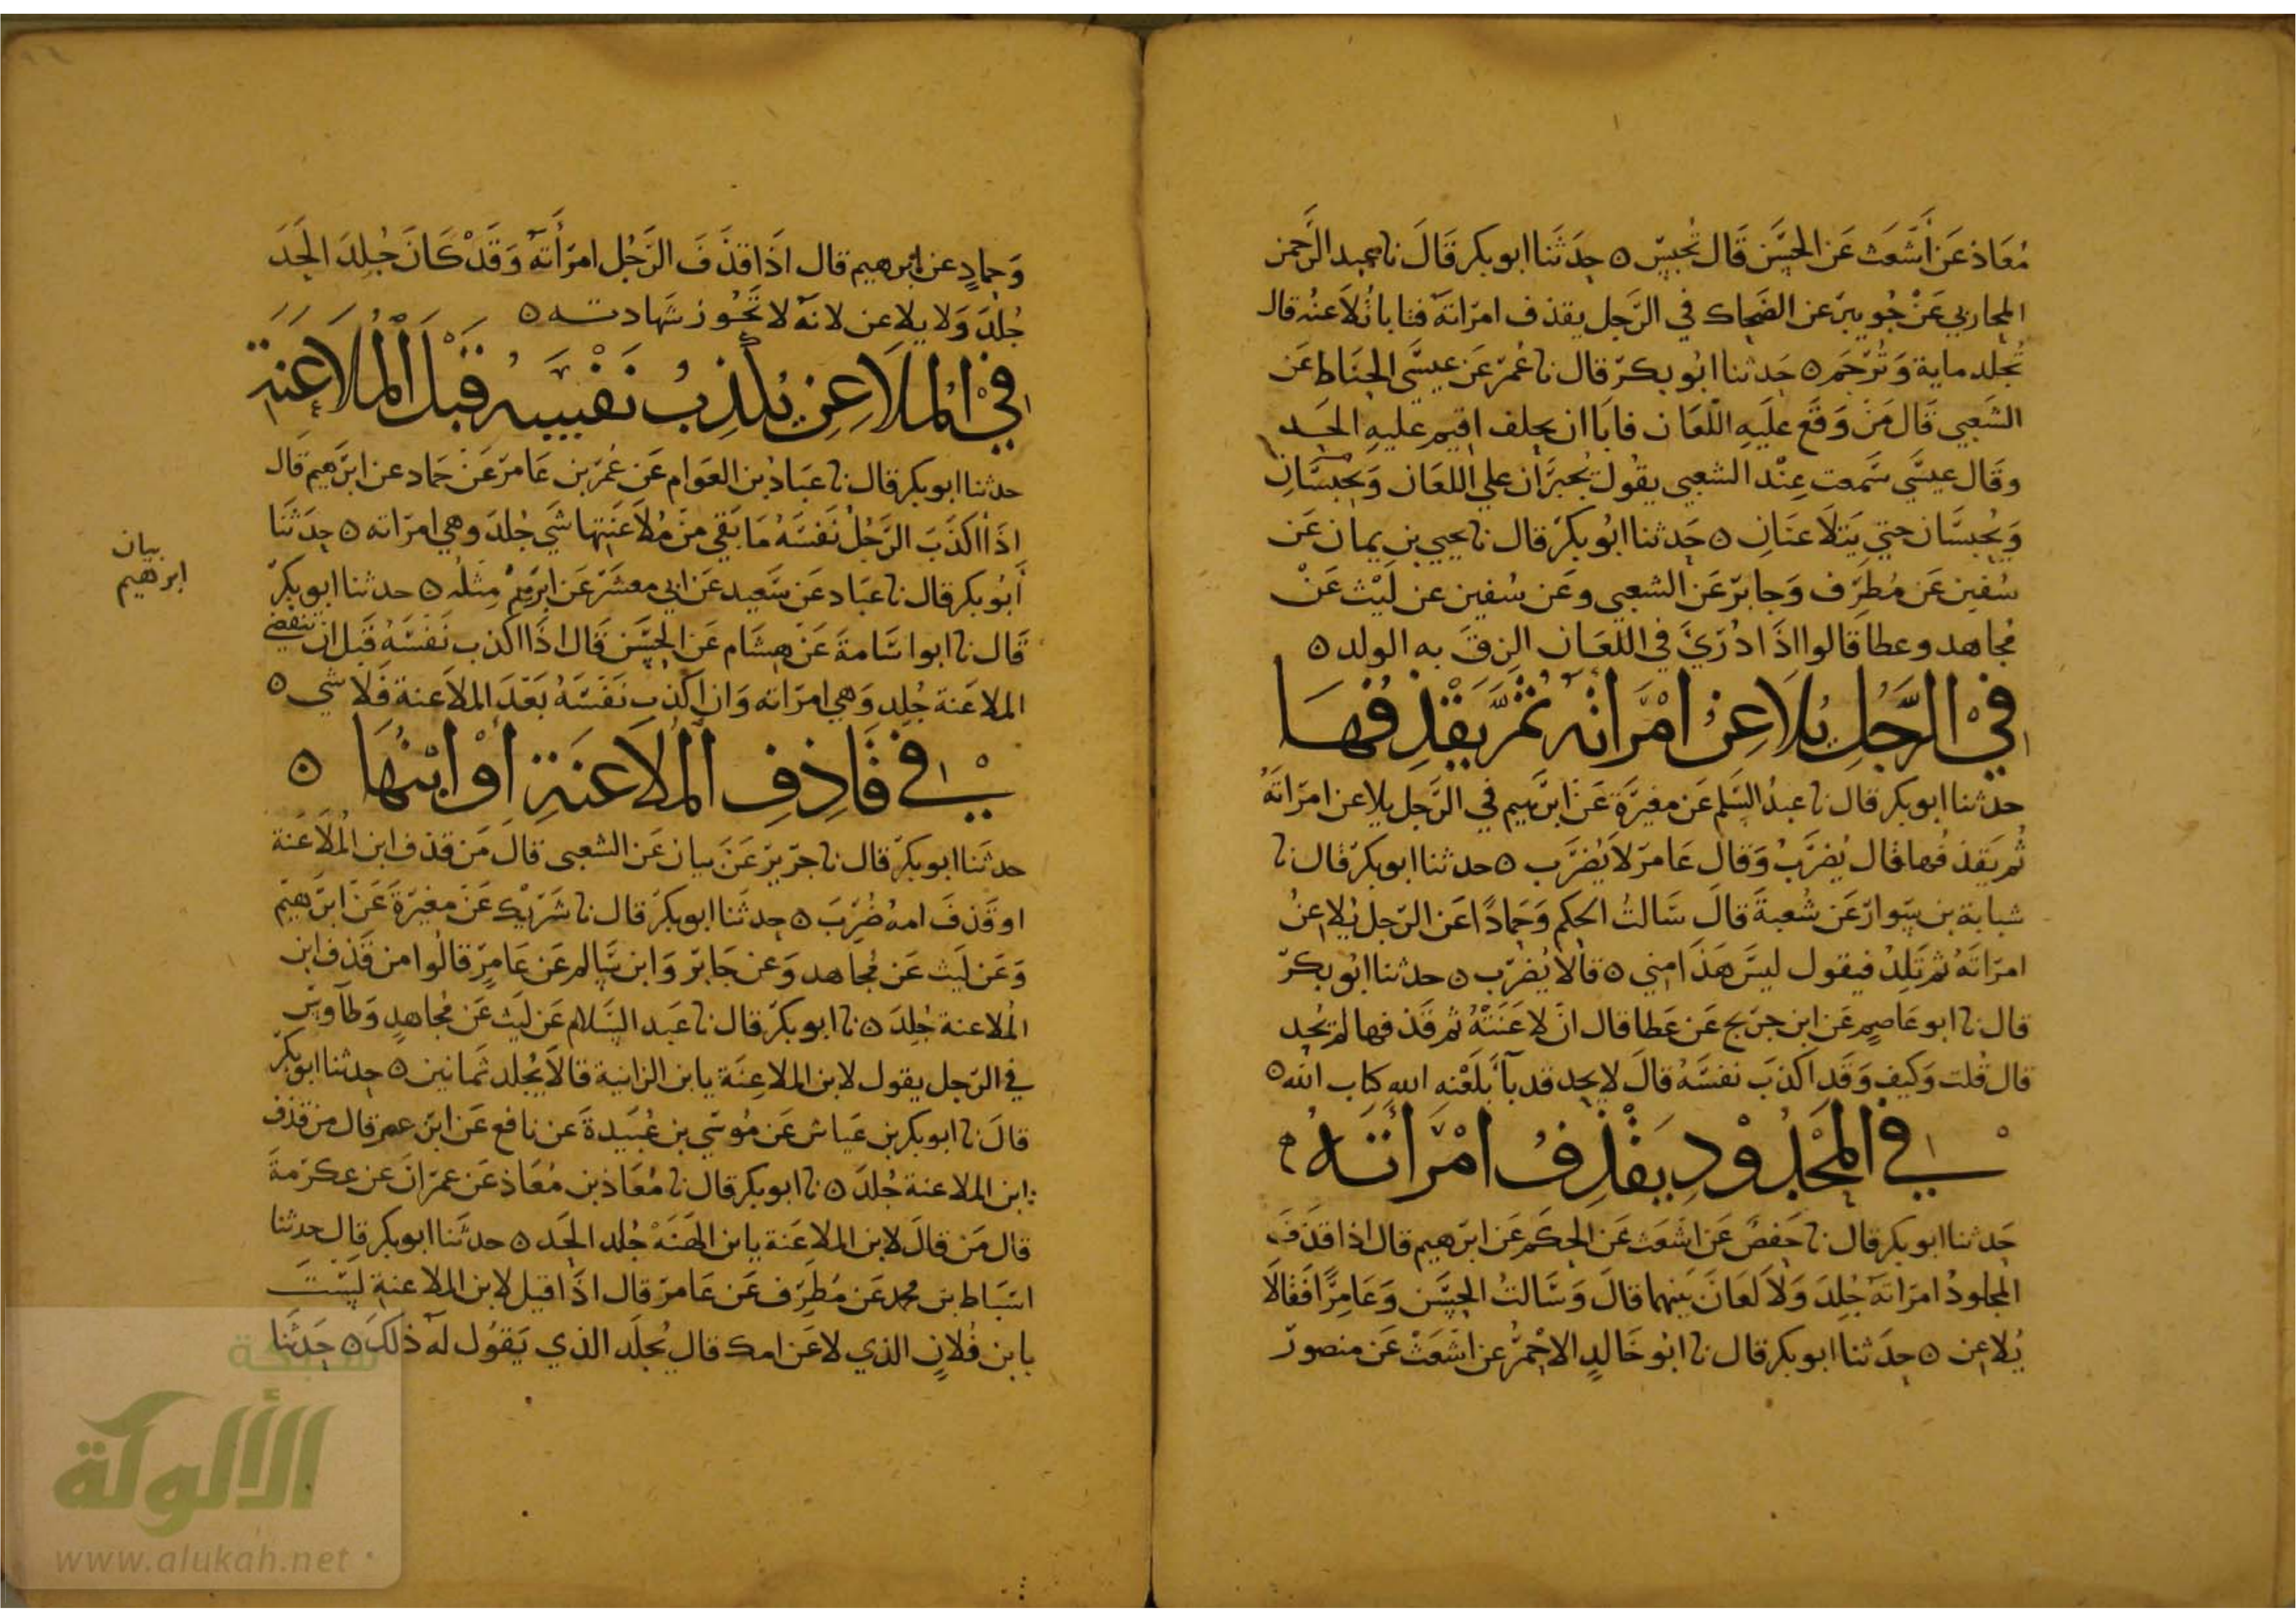 مُعَاذ عَن أَشْعَث عَن الحَسَن قَال تُحبَس ه حِدَثَنا ابو بكر قَالَ نا عبد الرَّحمن
المحاربي عَنْ جُويبر عن الضحاك في الرَّجل يقذف امرَاته فتابا تُلاَعنه قال
تُجلد ماية وَتُرْجَم ه حَدثنا ابُو بكر قال نا عُمَر عَن عيسَى الحنَاط عَن
الشَعبي قَال مَنْ وَقَع عليَهِ اللّعَان فابَا ان يحلف اقيم عليهِ الحَد
وقَال عيسَي سَمعت عِنْد الشعبي يقُول يُجبَرَان علي اللعَان وَيحْبسَان
وَيُحبسَان حتي يَتلَاعنَان ه حَدثنا ابُو بكر قال نا يحيي بن يمان عَن
سُفين عَن مُطرّف وَجابر عَن الشعبي وعَن سُفين عن ليْث عَنْ
مُجاهد وعطا قالوا اذَا ادُرَيَ في اللعَان الزقَ به الولد ه
في الرَّجُلِ يُلاَعِنُ امْرَاتَه ثمَّ يَقْذِفُهَا
حدثنا ابو بكر قال نا عبدُ السَلم عَن مغيرَة عَن ابرَهيم في الرَّجل يلاعن امرَاتَهُ
ثُم يَقذفُها قال يُضرَبُ وَقالَ عَامر لاَ يُضرَب ه حدثنا ابو بكر قال نا
شبابة بن سَوار عَن شُعبةَ قالَ سَالتُ الحكم وَحمادًا عَن الرّجل يُلاعنُ
امرَاتَهُ ثم تَلِدُ فيقول ليسَ هَذَا مني ه قالاَ يُضرَب ه حدثنا ابُو بكر
قال نا ابو عَاصِمٍ عَن ابن جرَيج عَن عَطا قال انْ لاعَنَتْهُ ثم قَذفها لم يُحد
قال قُلت وَكيف وَقَد اكذبَ نفسَهُ قالَ لا يحد قد بَا بَلَعْنه الله كتاب الله ه
في المَحْدُوْدِ يَقْذِفُ امْرَأتَهُ
حَدثنا ابو بكر قال نا حَفص عَن اشعَث عَن الحكم عَن ابرَهيم قال اذا قذفَ
المجلودُ امرَاتَهُ جُلِدَ وَلاَ لعَانَ بَينهما قالَ وَسَالتُ الحسَن وَعَامرًا فقالاَ
يُلاعن ه حدَثنا ابو بكر قال نا ابُو خَالدٍ الاحمرُ عن اشعَثَ عَن منصور
وَحمادٍ عن ابرهيم قال اذَا قذَفَ الرَّجُل امرَأتهُ وَقَدْ كَانَ جُلِدَ الحَدَ
جُلدَ وَلا يلاعن لانهُ لا تَجُوز شَهادته ه
في المُلاَعِنِ يُكَذِبُ نَفْسَهُ قَبْلَ الْمُلاَعَنَةِ
حدثنا ابو بكر قال نا عبَادُ بن العَوام عَن عُمَر بن عَامر عَنْ حَماد عن ابرَهيم قَال
اذَا اكذَبَ الرَّجُلُ نَفسَهُ مَا بَقي مِن مُلاَعَنَتِها شَي جُلدَ وهي امرَاته ه حِدَثَنَا
أَبُو بكر قال نا عبَاد عَن سَعيد عَن ابي معشَر عَن ابرهيم مِثلُه ه حدثنا ابو بكر
قَال نا ابوا سَامةَ عَن هشَام عَن الحسَن قَال اذَا اكذب نَفسَهُ قَبل ان تنقضي
الملاعَنة جُلِد وَهي امرَاته وَان اكذب نَفسَهُ بَعدَ الملاَعنة فَلا شي ه
في قَاذِفِ المُلاَعَنَةِ أَوْ ابْنِهَا ه
حدثَنا ابو بكر قال نا جَرير عَن بيان عَن الشعبي قال مَن قذف ابن الْمُلَاعَنة
او قَذفَ امهُ ضُرِبَ ه حدثَنا ابو بكر قال نا شَرَيك عَن مغيرَة عَن ابرَهيم
وَعَن لَيث عَن مُجاهد وَعن جَابر وَابن سَالم عَن عَامِر قالُوا من قَذف ابن
المُلاعنة جُلِدَ ه نا ابو بكر قال نا عَبد السَلام عَن ليَث عَن مُجاهدٍ وَطاوس
في الرّجل يقول لابن الملاعِنَة يا بن الزانية قالاَ يُجلد ثمَانين ه حدثنا ابو بكر
قالَ نا ابو بكر بن عَياش عَن مُوسَي بن عُبَيدةَ عَن نافع عَن ابن عمر قال من قذف
ابن الملاعنة جُلدَ ه نا ابو بكر قال نا مُعَاذ بن مُعَاذ عَن عمرَانَ عن عكرمةَ
قال مَن قالَ لابن الملاعَنة يا بن الهَنَهْ جُلد الحَد ه حدثَنا ابو بكر قال حدثنا
اسبَاط بن محمد عَن مُطرّف عَن عَامر قال اذَا قيل لابن الملاعنةِ لسَتَ
بابن فُلانٍ الذي لاعَن امك قال يُجلَد الذي يَقوُل له ذلكَ ه حَدثَنا
بيان
ابرهيم
شبكة
الألوكة
www.alukah.net